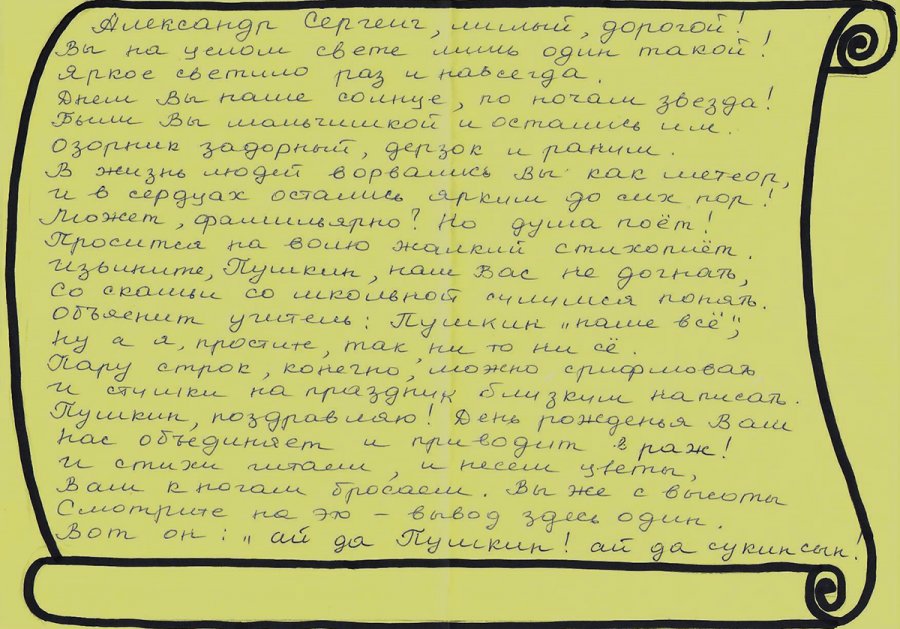 Александр Сергеич, милый, дорогой!
Вы на целом свете лишь один такой!
Яркое светило раз и навсегда.
Днем Вы наше солнце, по ночам звезда!
Были Вы мальчишкой и остались им.
Озорник задорный, дерзок и раним.
В жизнь людей ворвались Вы как метеор,
и в сердцах остались ярким до сих пор!
Может, фамильярно? Но душа поёт!
Просится на волю жалкий стихоплёт.
Извините, Пушкин, нам Вас не догнать,
Со скамьи со школьной силимся понять.
Объяснит учитель: Пушкин „наше всё",
Ну а я, простите, так, ни то ни сё.
Пару строк, конечно, можно срифмовать
и стишки на праздник близким написать.
Пушкин, поздравляю! День рожденья Ваш
Нас объединяет и приводит в раж!
И стихи читаем, и несем цветы,
Вам к ногам бросаем. Вы же с высоты
Смотрите на это – вывод здесь один.
Вот он: „ай да Пушкин! ай да сукин сын!